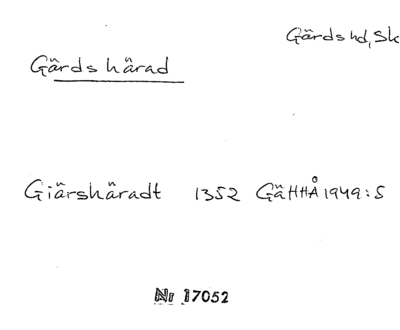 Gärds hd, Sk
Gärds härad
Giärshäradt 1352 GäHHÅ 1949:5
Nr 17052